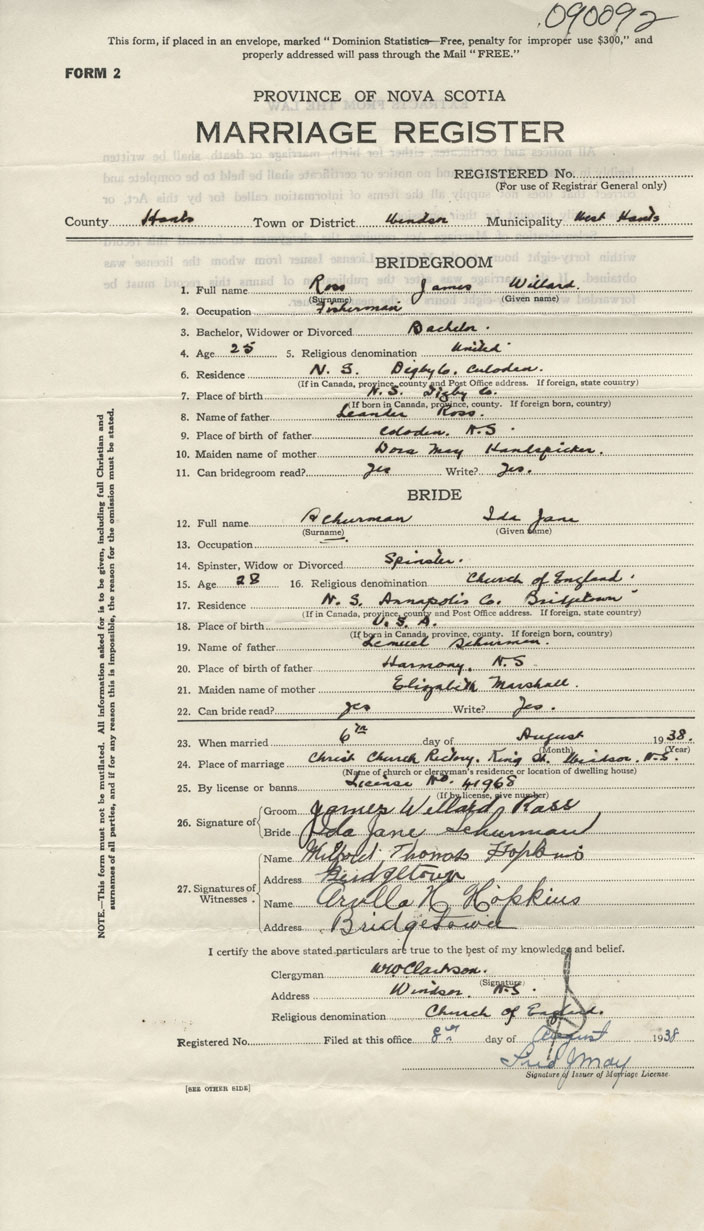 .090092
This form, if placed in an envelope, marked "Dominion Statistics—Free, penalty for improper use $300," and
properly addressed will pass through the Mail "FREE."
FORM 2
PROVINCE OF NOVA SCOTIA
MARRIAGE REGISTER
REGISTERED No.
(For use of Registrar General only)
County Hants Town or District Windsor Municipality West Hants
BRIDEGROOM
1. Full name Ross James Willard.
(Surname) (Given name)
2. Occupation Fisherman
3. Bachelor, Widower or Divorced Bachelor.
4. Age 25 5. Religious denomination United
6. Residence N. S. Digby Co. Culoden.
(If in Canada, province, county and Post Office address. If foreign, state country)
7. Place of birth N. S. Digby Co.
(If born in Canada, province, county. If foreign born, country)
8. Name of father Leander Ross.
9. Place of birth of father Coloden. N.S
10. Maiden name of mother Dora May Handspicker.
11. Can bridegroom read? yes Write? yes.
BRIDE
12. Full name Schurman Ida Jane
(Surname) (Given name)
13. Occupation —
14. Spinster, Widow or Divorced Spinster.
15. Age 28 16. Religious denomination Church of England.
17. Residence N. S. Annapolis Co. Bridgetown
(If in Canada, province, county and Post Office address. If foreign, state country)
18. Place of birth U. S. A.
(If born in Canada, province, county. If foreign born, country)
19. Name of father Lemuel Schurman.
20. Place of birth of father Harmony. N.S
21. Maiden name of mother Elizabeth Marshall.
22. Can bride read? yes Write? yes.
23. When married 6th day of August 1938.
(Month) (Year)
24. Place of marriage Christ Church Rectory, King St. Windsor. N.S.
(Name of church or clergyman's residence or location of dwelling house)
25. By license or banns License No. 41968
(If by license, give number)
26. Signature of Groom James Willard Ross
Bride Ida Jane Schurman
27. Signatures of Witnesses. Name Thomas Hopkins
Address Bridgetown
Name Arvilla N Hopkins
Address Bridgetown
I certify the above stated particulars are true to the best of my knowledge and belief.
Clergyman WWClarkson.
(Signature)
Address Windsor N.S.
Religious denomination Church of England.
Registered No. Filed at this office 8th day of August 1938
Fred J May
Signature of Issuer of Marriage License
[SEE OTHER SIDE]
NOTE.—This form must not be mutilated. All information asked for is to be given, including full Christian and
surnames of all parties, and if for any reason this is impossible, the reason for the omission must be stated.